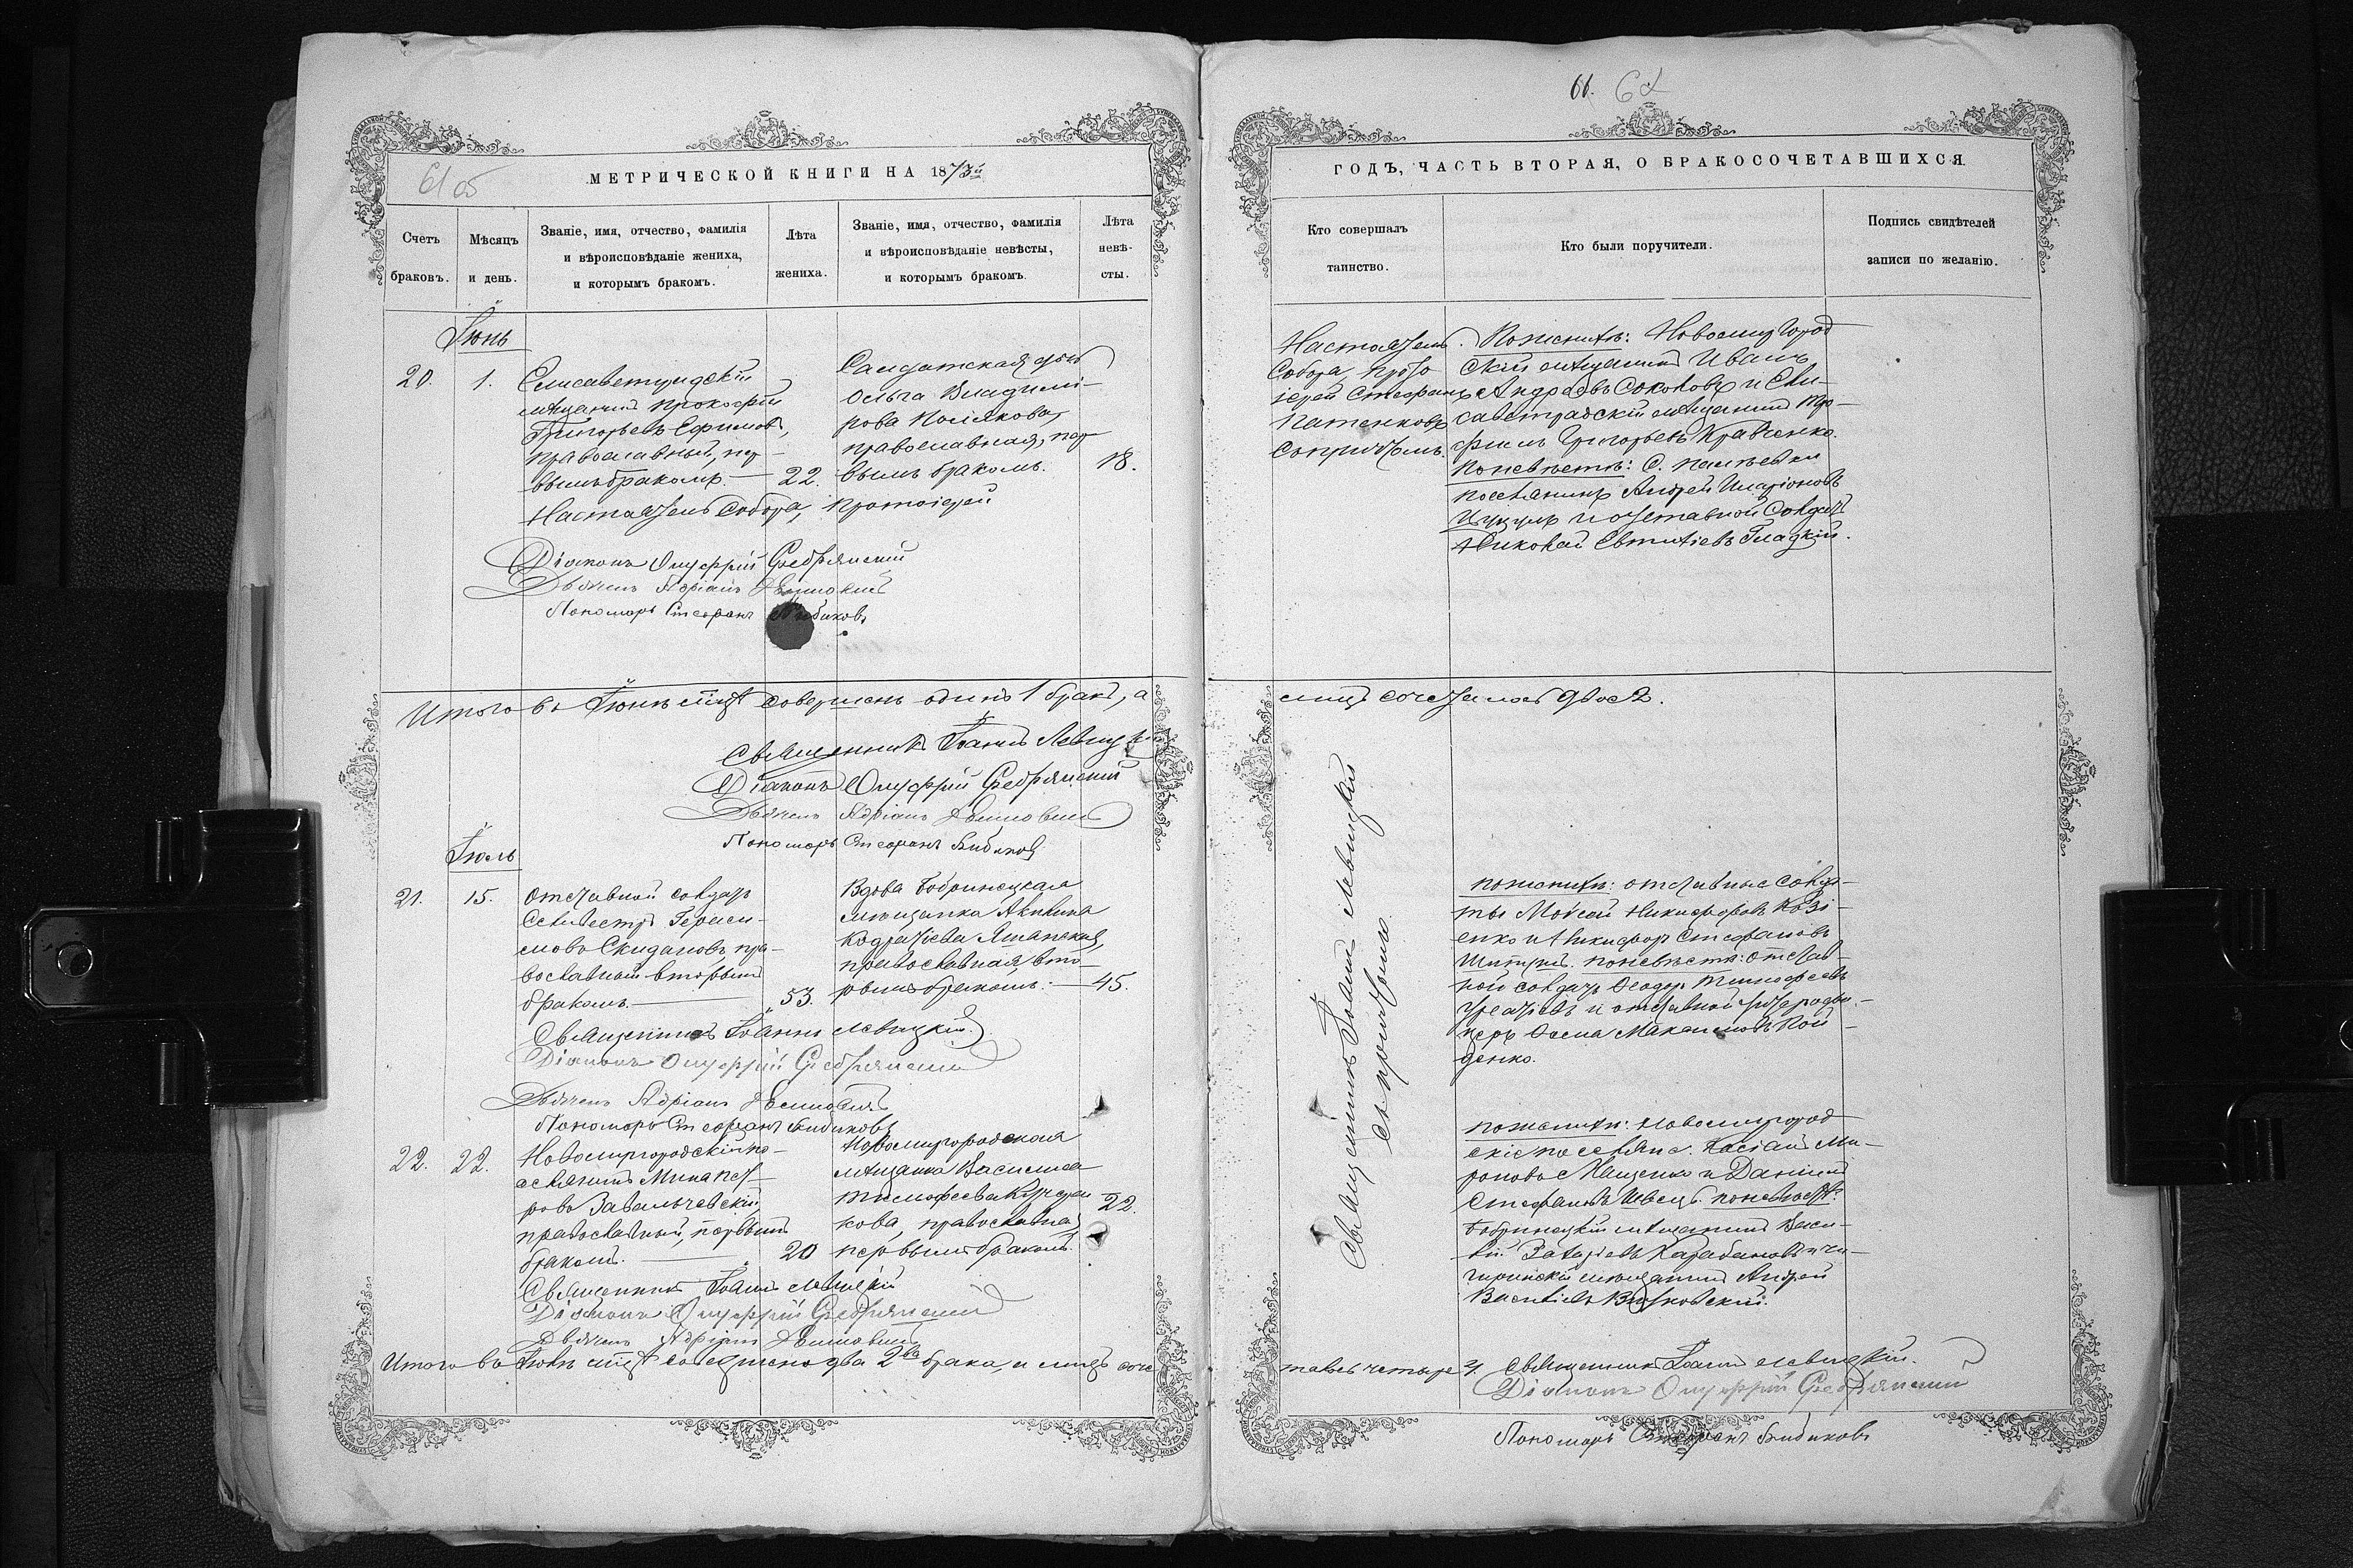 61 об
МЕТРИЧЕСКОЙ КНИГИ НА 1873й
Счетъ браковъ.
Мѣсяцъ и день.
Званіе, имя, отчество, фамилія
и вѣроисповѣданіе жениха,
и которымъ бракомъ.
Лѣта
жениха.
Званіе, имя, отчество, фамилія
и вѣроисповѣданіе невѣсты,
и которымъ бракомъ
Лѣта
невѣ-
сты.
Іюнь
20. 1.
Елисаветградскій
мѣщанинъ Прокофій
Григорьевъ Ефимовъ,
православный, пер-
вымъ бракомъ. — 22.
Солдатская дочь
Ольга Владимі-
рова Полякова,
православная, пер-
вымъ бракомъ. 18.
Настоятель Собора, Протоіерей
Діаконъ Онуфрій Сребрянскій
Дьячекъ Адріанъ
Пономарь Стефанъ Бибиковъ
Итого въ Іюнѣ м-цѣ совершенъ одинъ 1 бракъ, а
Священникъ Іоаннъ Левицкій
Діаконъ Онуфрій Сребрянскій
Дьячекъ Адріанъ
Пономарь Стефанъ Бибиковъ
Іюль
21. 15.
Отставной солдатъ
Селивестръ Гераси-
мовъ Скидановъ, пра-
вославный вторымъ
бракомъ. — 53.
Вдова Бобринецкая
мѣщанка Акилина
православная, вто-
рымъ бракомъ. — 45.
Священникъ Іоаннъ Левицкій
Діаконъ Онуфрій Сребрянскій
Дьячекъ Адріанъ
Пономарь Стефанъ Бибиковъ
22. 22.
Новомиргородскій по-
селянинъ Мина Пет-
ровъ Завальчевскій,
православный, первымъ
бракомъ. — 20
Новомиргородская
мѣщанка Василиса
Тимофеева
кова, православная
первымъ бракомъ.
22.
Священникъ Іоаннъ Левицкій
Діаконъ Онуфрій Сребрянскій
Дьячекъ Адріанъ
Итого въ Іюлѣ м-цѣ совершено два 2ва брака, а лицъ соче-
61.
ГОДЪ, ЧАСТЬ ВТОРАЯ, О БРАКОСОЧЕТАВШИХСЯ.
Кто совершалъ
таинство.
Кто были поручители.
Подпись свидѣтелей
записи по желанію.
Настоятель
Собора, Прото
іерей Стефанъ
Патенковъ
съ причтомъ.
По женихѣ: Новомиргород
скій мѣщанинъ Иванъ
Андреевъ Соколовъ и Ели-
саветградскій мѣщанинъ Тро-
фимъ Григорьевъ Кравченко.
По невѣстѣ: С.
поселянинъ Андрей Иларіоновъ
и отставной солдатъ
Николай Евтихіевъ Гладкій.
лицъ сочеталось двое 2.
Священникъ Іоаннъ Левицкій
съ причтомъ.
по женихѣ: отставные солда-
ты Моисей Никифоровъ Козі-
енко и Никифоръ Стефановъ
по невѣстѣ: отстав-
ной солдатъ Ѳеодоръ Тимофеевъ
и отставной унтеръ офи-
церъ Ѳома Максимовъ Кой-
денко.
по женихѣ: новомиргород
скіе поселяне: Касіанъ Ми-
роновъ Мащенко и Даніилъ
Стефановъ Швецъ. по невѣстѣ:
Бобринецкій мѣщанинъ Васи-
лій Захаріевъ Карабановъ и чи-
гиринскій мѣщанинъ Андрей
Васильевъ
талось четыре 4. Священникъ Іоаннъ Левицкій.
Діаконъ Онуфрій Сребрянскій
Пономарь Стефанъ Бибиковъ